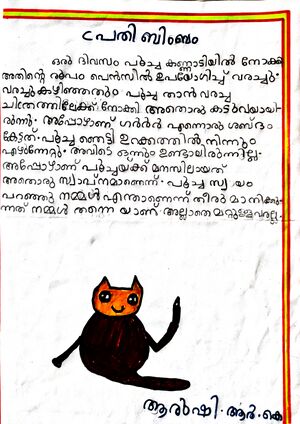 പ്രതിബിംബം
ഒരു ദിവസം പൂച്ച കണ്ണാടിയിൽ നോക്കി
അതിന്റെ രൂപം പെൻസിൽ ഉപയോഗിച്ച് വരച്ചു.
വരച്ചുകഴിഞ്ഞതും പൂച്ച താൻ വരച്ച
ചിത്രത്തിലേക്ക് നോക്കി അതൊരു കടുവയായി
രുന്നു. അപ്പോഴാണ് ഗർർർ എന്നൊരു ശബ്ദം
കേട്ടത്. പൂച്ച ഞെട്ടി ഉറക്കത്തിൽ നിന്നും
എഴുന്നേറ്റു. അവിടെ ഒന്നും ഉണ്ടായിരുന്നില്ല.
അപ്പോഴാണ് പൂച്ചയ്ക്ക് മനസിലായത്
അതൊരു സ്വപ്നമാണെന്ന്. പൂച്ച സ്വയം
പറഞ്ഞു നമ്മൾ എന്താണെന്ന് തീരുമാനിക്കു
ന്നത് നമ്മൾ തന്നെയാണ് അല്ലാതെ മറ്റുള്ളവരല്ല.
ആരുഷി. ആർ. കെ